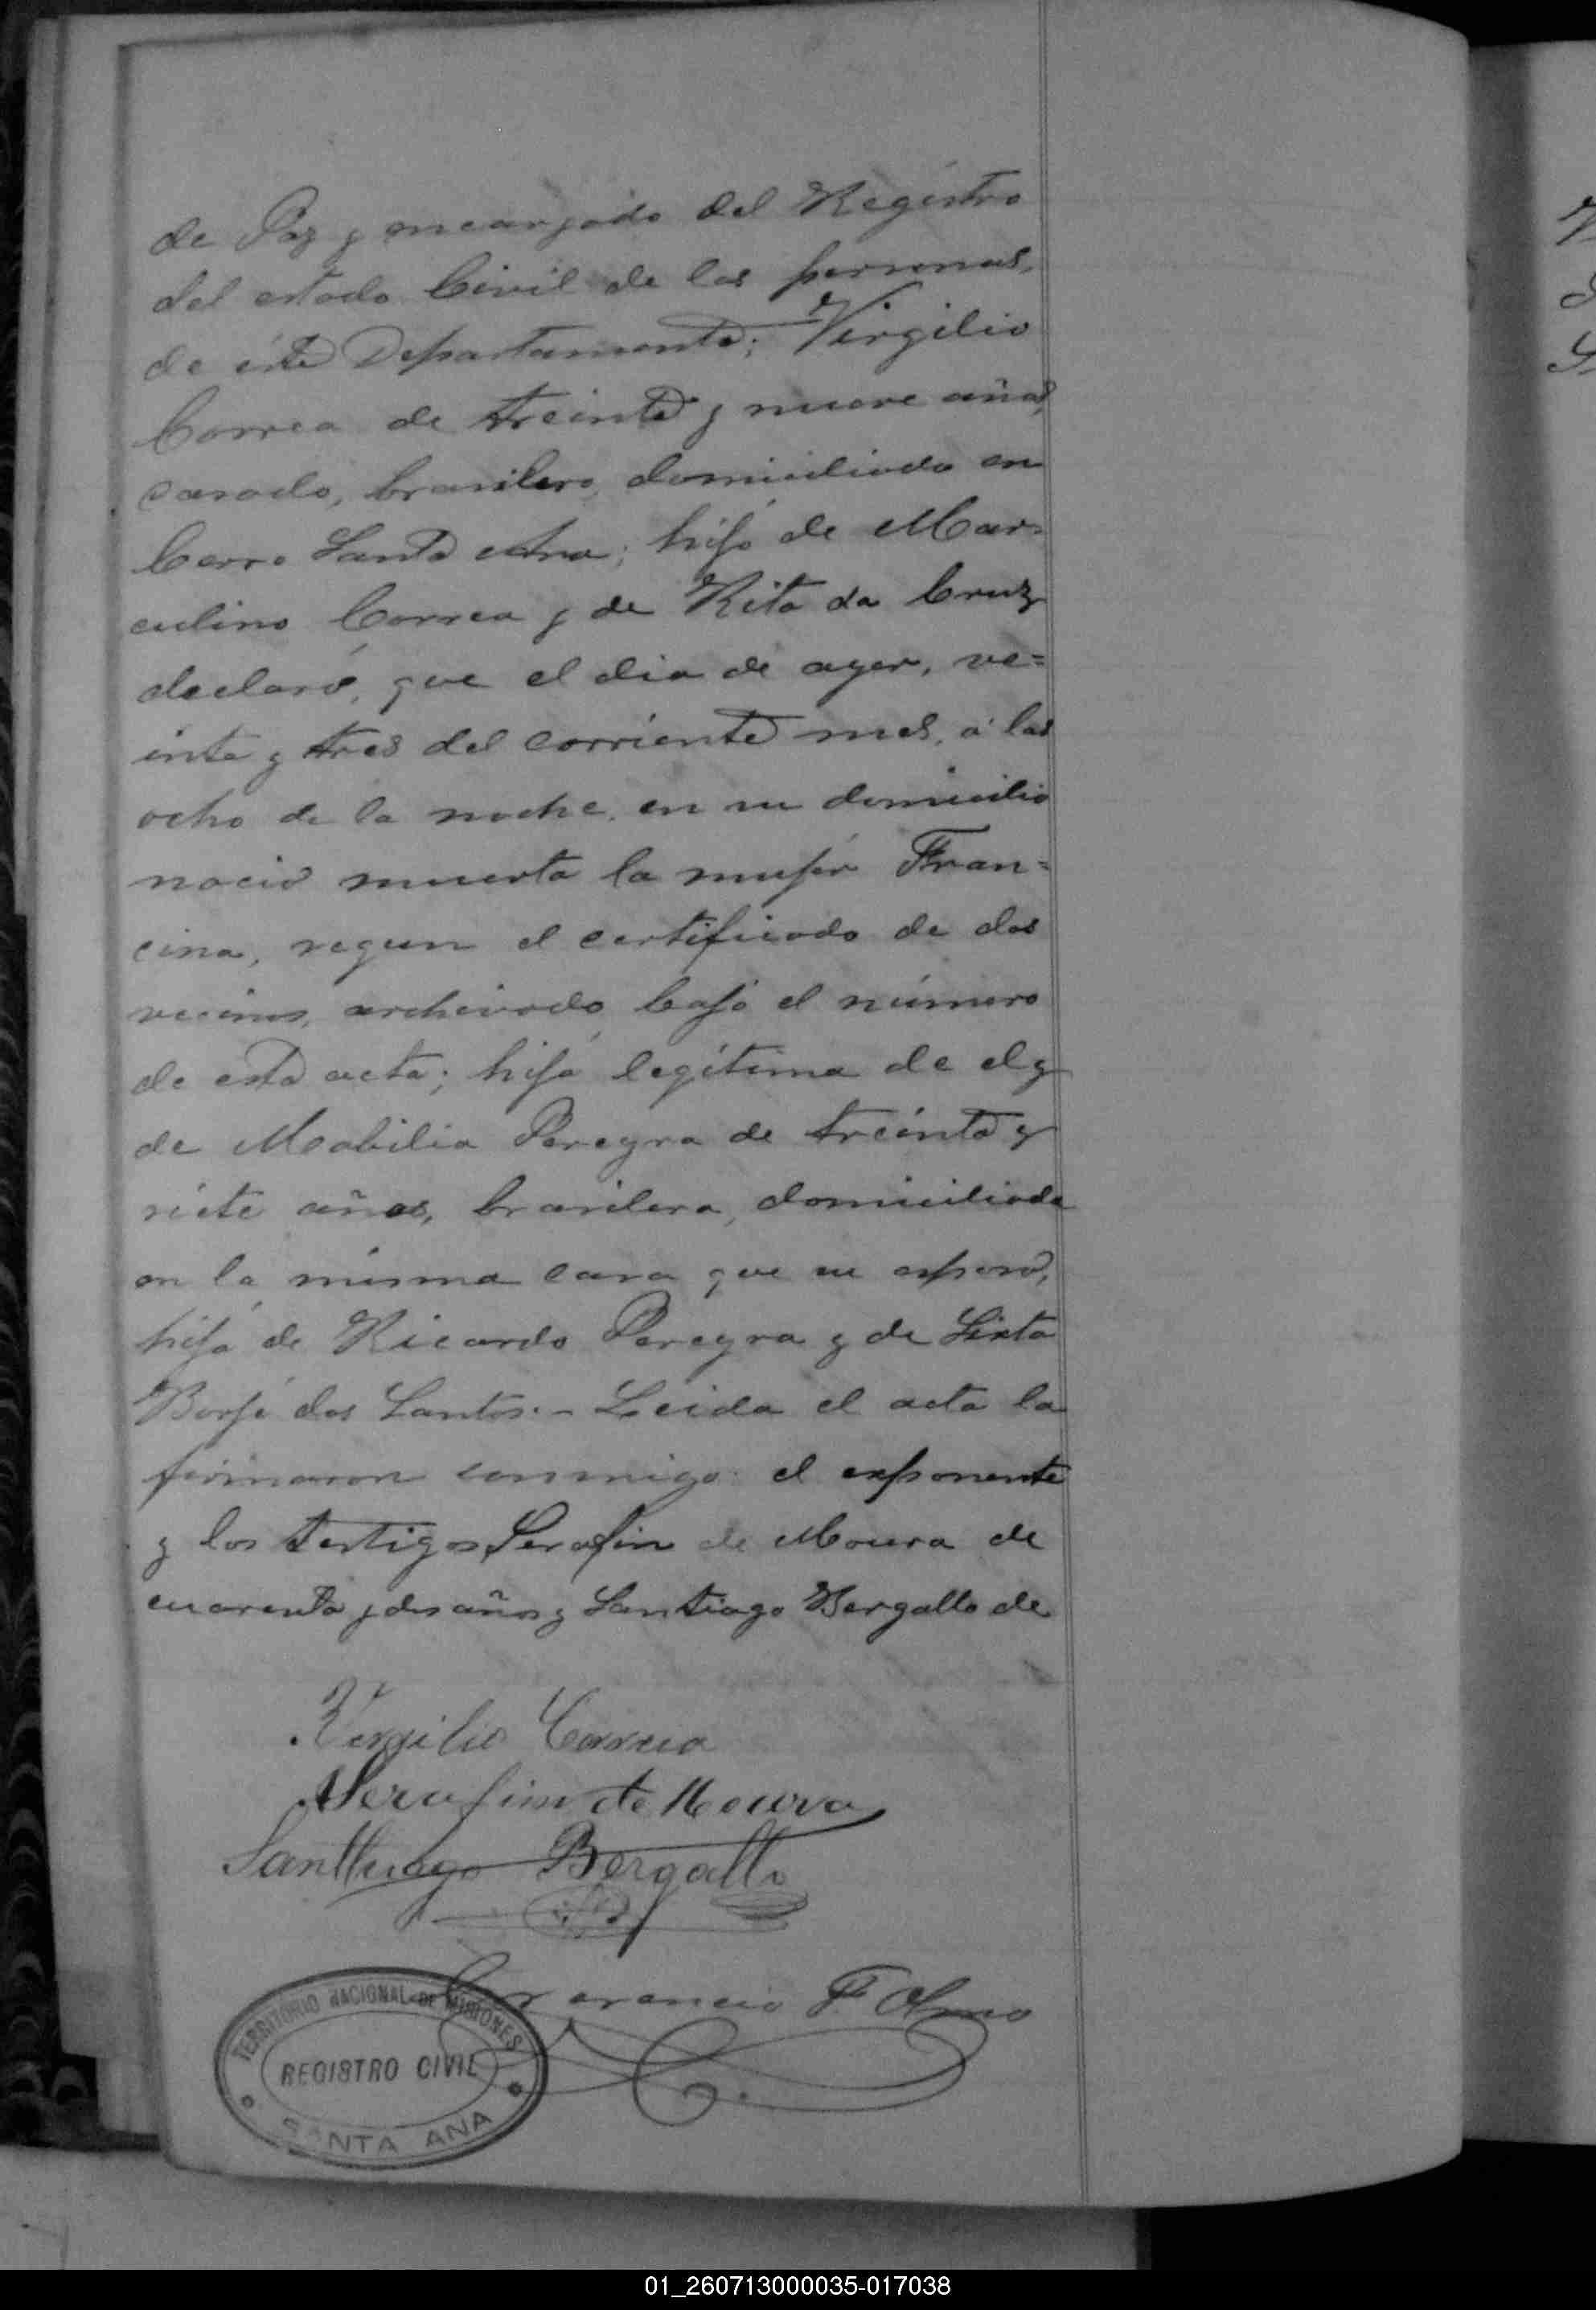 de Paz y encargado del Registro
del estado Civil de las personas,
de éste Departamento; Virgilio
Correa de treinta y nueve años,
casado, brasilero, domiciliado en
Cerro Santa Ana; hijo de Mar=
culino Correa y de Rita da Cruz
declaró, que el dia de ayer, ve=
inte y tres del corriente mes, á las
ocho de la noche, en su domicilio
nació muerta la mujér Fran=
cina, segun el certificado de dos
vecinos, archivado bajo el número
de esta acta; hija legítima de el y
de Mabilia Pereyra de treinta y
siete años, brasilera, domiciliada
en la misma casa que su esposo,
hija de Ricardo Pereyra y de Sixta
Borje dos Santos.- Leida el acta la
firmaron conmigo el exponente
y los testigos Serafin de Moura de
cuarenta y dos años y Santiago Bergallo de
Virgilio Correa
Serafim de Moura
Santiago Bergallo
F. Olmo
TERRITORIO NACIONAL DE MISIONES
REGISTRO CIVIL
SANTA ANA
01_260713000035-017038